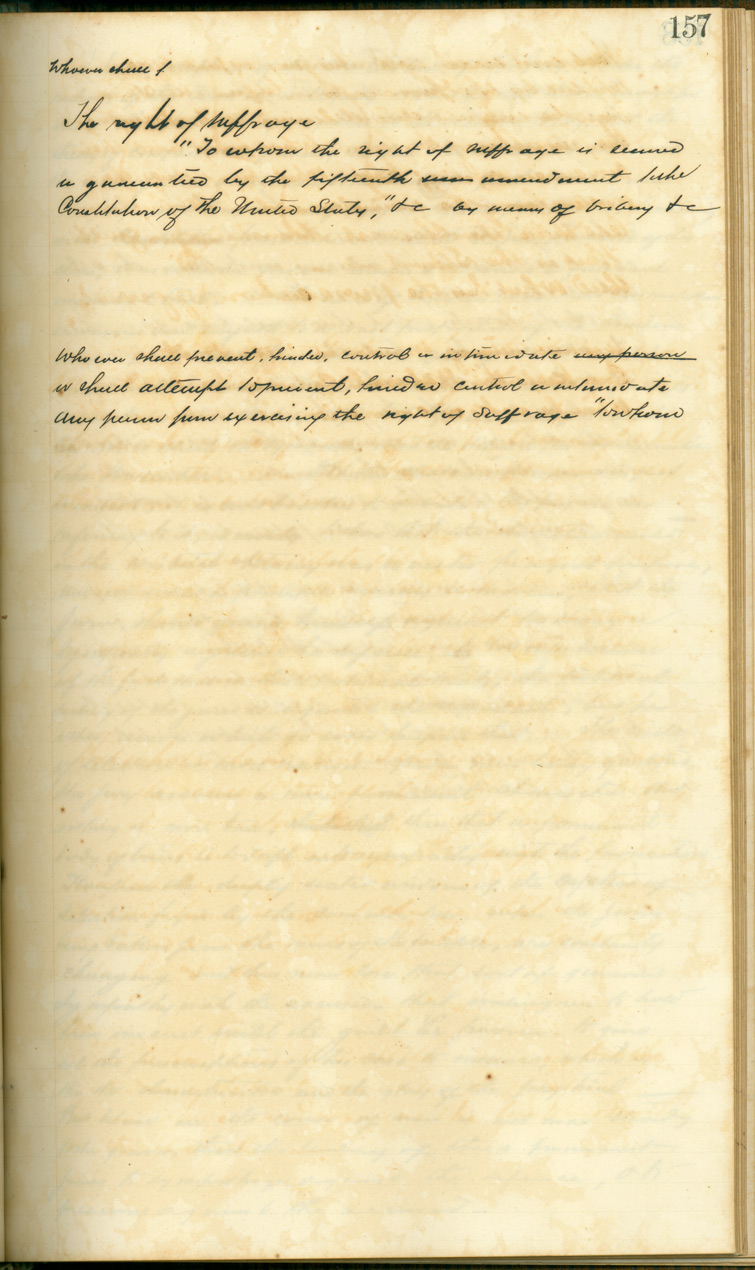 157
Whoever shall f
The right of suffrage
"To whom the right of suffrage is secured
or guarantied by the fifteenth amendment to the
Constitution of the United States," &c by means of bribery &c
Whoever shall prevent, hinder, control or intimidate any person
or shall attempt to prevent, hinder control or intimidate
any person from exercising the right of suffrage "to whom